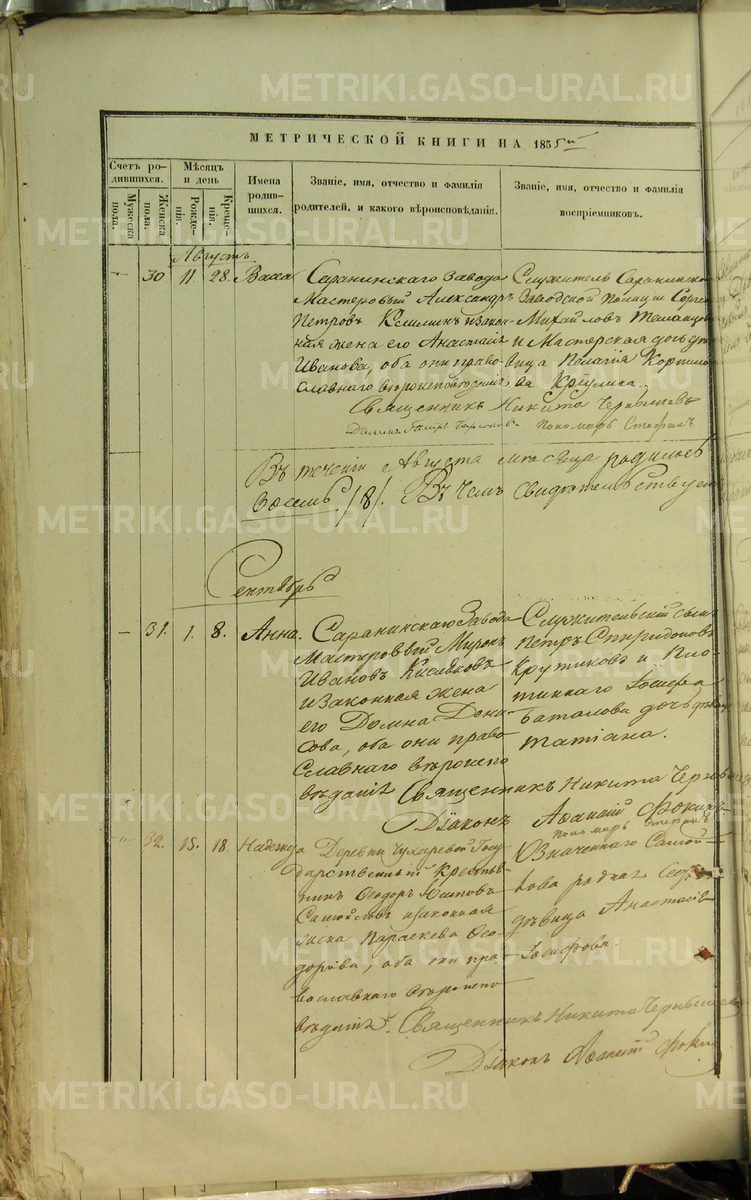 МЕТРИЧЕСКОЙ КНИГИ НА 1855й
Счетъ ро-
дившихся.
Мѣсяцъ
и день
Имена
родив-
шихся.
Званіе, имя, отчество и фамилія
родителей, и какого вѣроисповѣданія.
Званіе, имя, отчество и фамилія
воспріемниковъ.
Мужеска
пола.
Женска
пола.
Рожде-
нія.
Креще-
нія.
Августъ
30 11 28. Васса
Саранинскаго завода
Мастеровый Александръ
Петровъ и закон-
ная жена его Анастасія
Иванова, оба они право-
славнаго вѣроисповѣданія
Служитель Саранинской
Заводской Полиціи Сергей
Михайловъ
и Мастерская дочь дѣ-
вица Пелагія
Крюлина.
Священникъ Никита Чернышевъ
Пономарь Стефанъ
Въ теченіи Августа месяце родилось
восемь /8/. Въ чемъ свидѣтельствуемъ
Сентябрь
31. 1. 8. Анна.
Саранинскаго Завода
Мастеровый Миронъ
Ивановъ Кисляковъ
и законная жена
его Домна Дени-
сова, оба они право
славнаго вѣроиспо
вѣданія
Служительскій сынъ
Петръ Спиридоновъ
Крутиковъ и Пло-
тиннаго Іосифа
Баталова дочь дѣвица
Татіана.
Священникъ Никита Чернышевъ
Діаконъ Афанасій Фокинъ
пономарь Стефанъ
32. 15. 18. Надежда
Деревни Чухаревой Госу
дарственный Крестья
нинъ Феодоръ
Самойловъ и законная
жена Параскева Фео-
дорова, оба они пра-
вославнаго вѣроиспо
вѣданія.
Означеннаго Самой-
лова родная
дѣвица Анастасія
Іосифова
Священникъ Никита Чернышевъ
Діаконъ Афанасій Фокинъ
METRIKI.GASO-URAL.RU